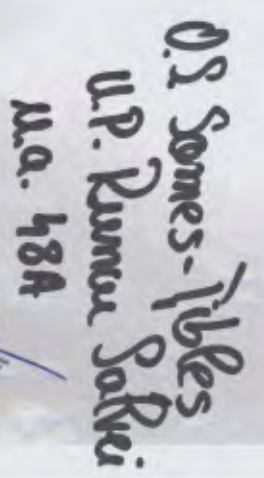 O.S Someș-Tibleș
U.P. Runcu Salvei
u.a. 48A